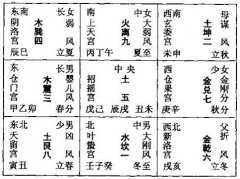 东南 长女
阴洛宫
木巽四
弱风
辰巳 立夏
南 中女
上天宫
火离九
大弱风
丙丁午 夏至
西南 母
玄委宫
土坤二
谋风
未申 立秋
东 长男
仓门宫
木震三
婴儿风
甲乙卯 春分
中央
招摇宫
土五
戊己 辰戌 丑未
西 少女
仓果宫
金兑七
刚风
庚辛酉 秋分
东北 少男
天留宫
土艮八
凶风
寅丑 立春
北 中男
叶蛰宫
水坎一
大刚风
壬子癸 冬至
西北 父
新洛宫
金乾六
折风
戌亥 立冬